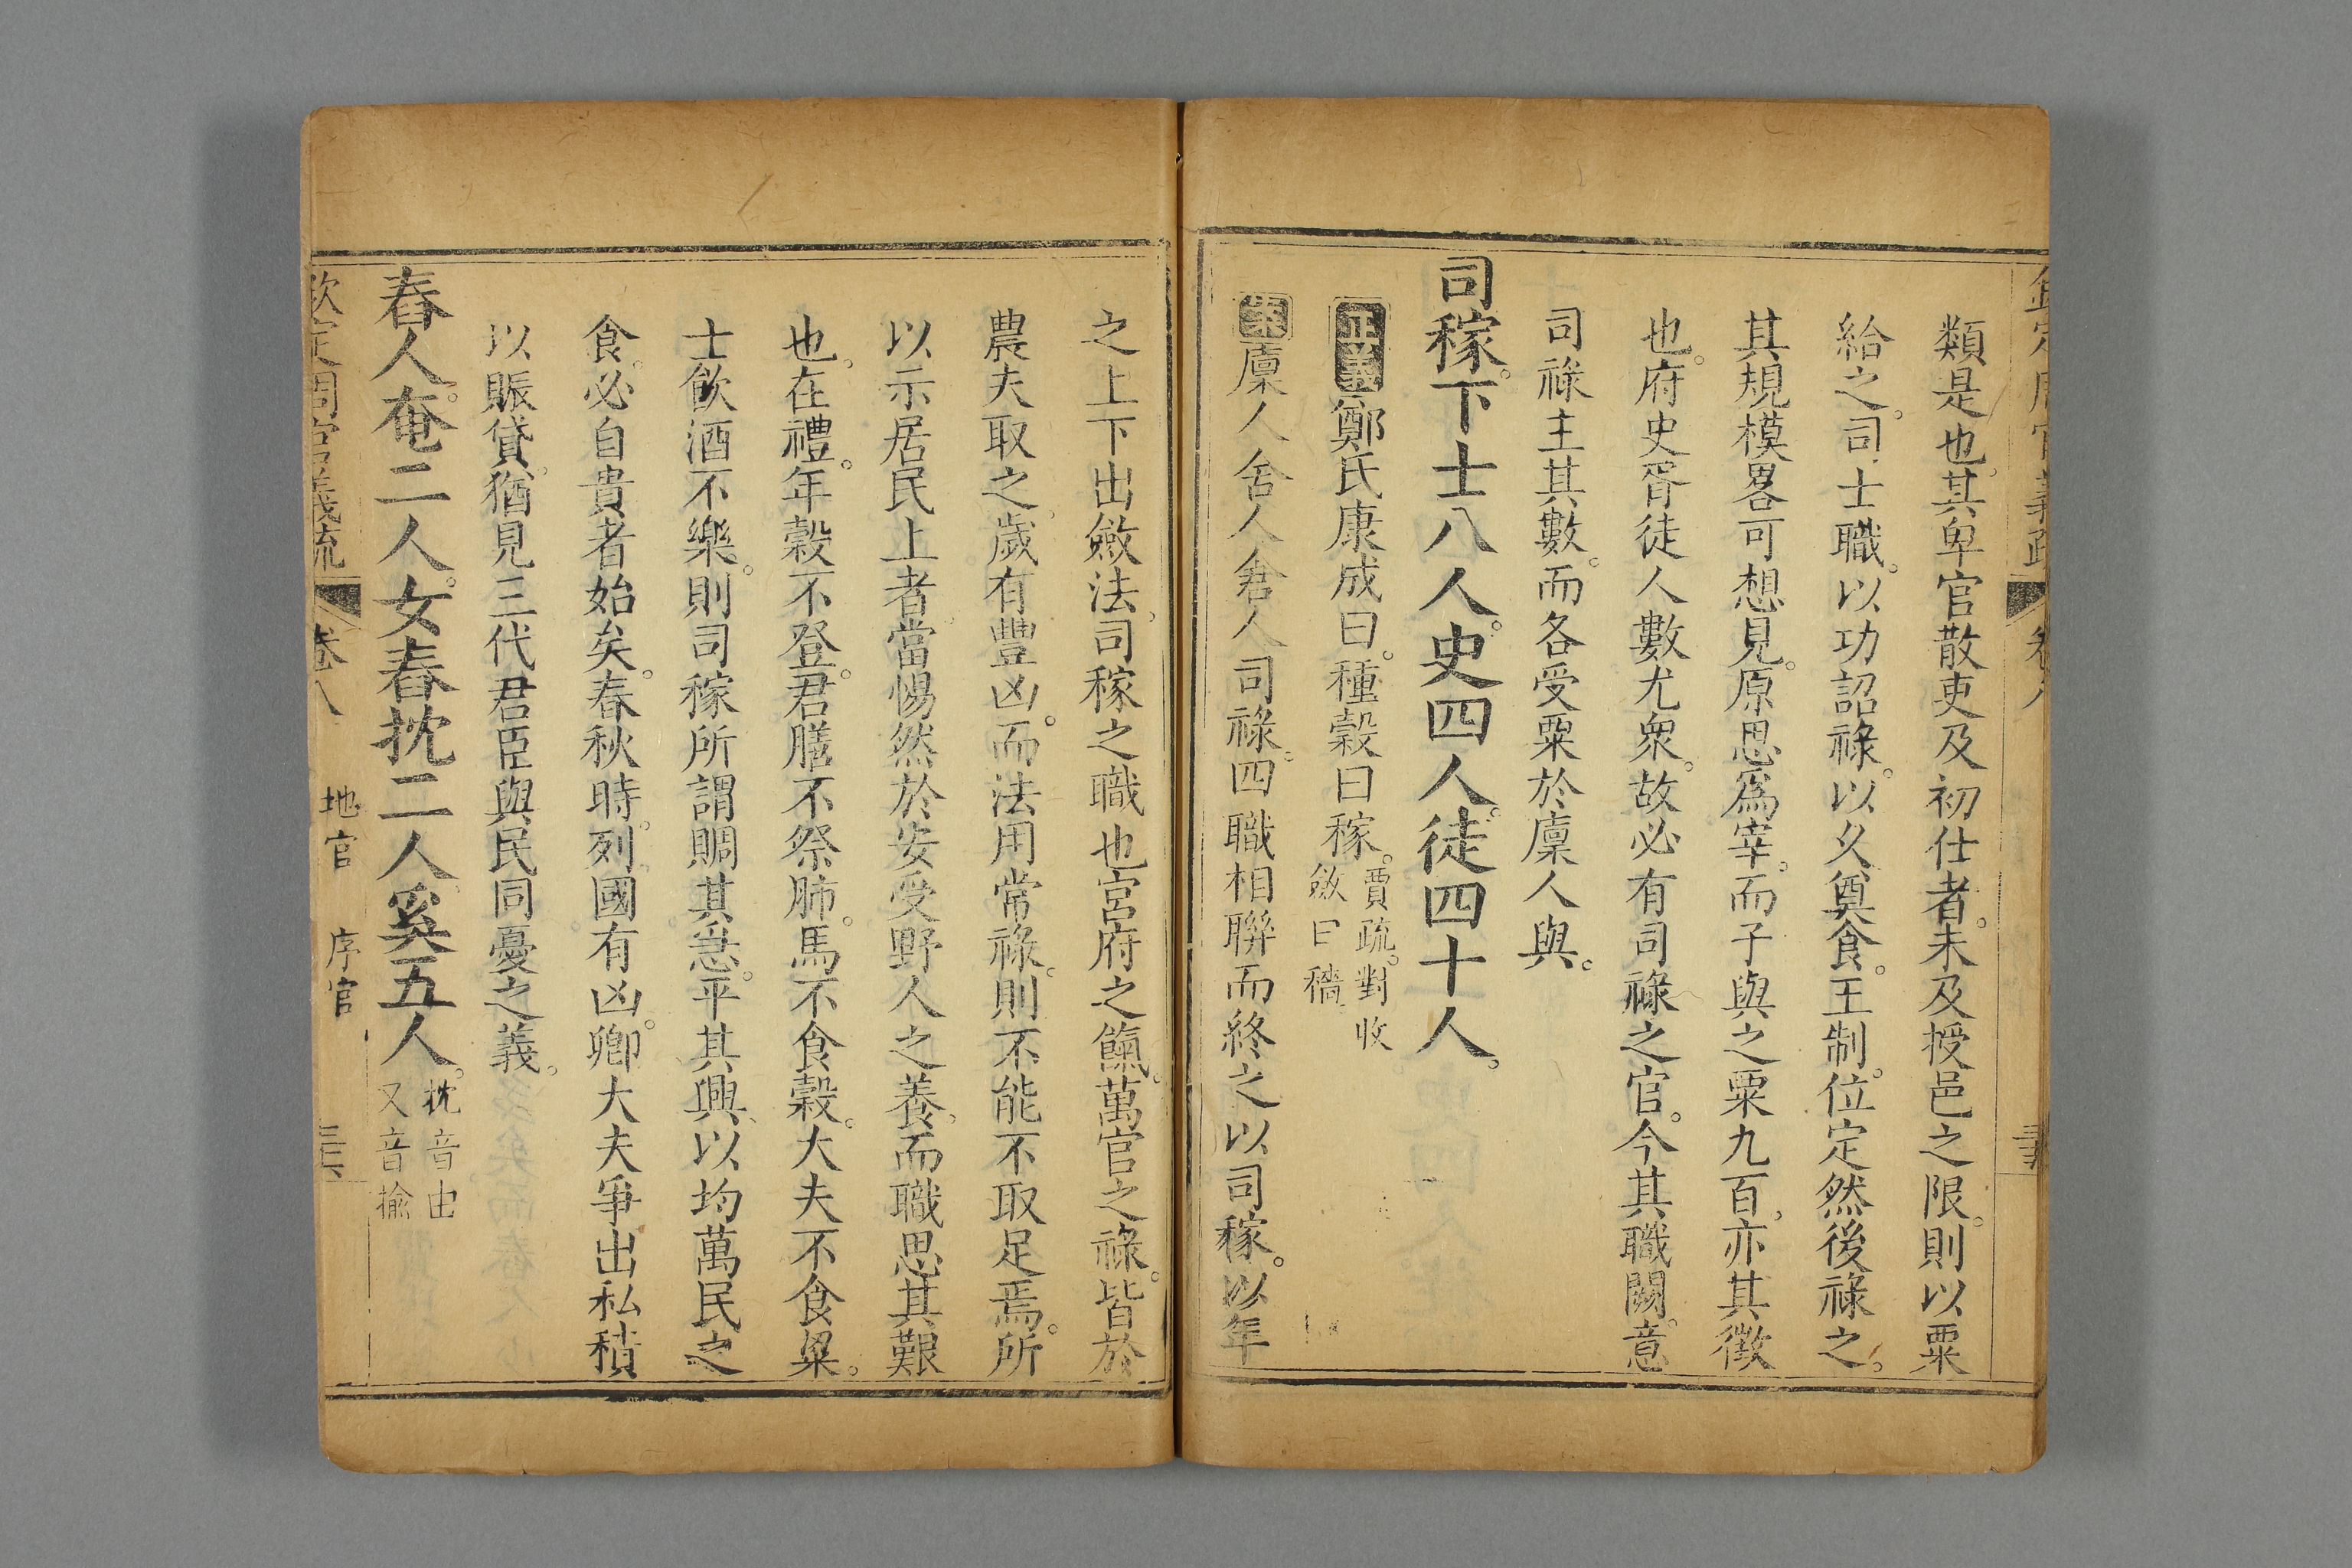 欽定周官義疏 卷八
類是也其卑官散吏及初仕者。未及授邑之限。則以粟
給之。司士職。以功詔祿。以久奠食。王制。位定然後祿之。
其規模畧可想見。原思爲宰。而子與之粟九百。亦其徵
也。府史胥徒人數尤衆。故必有司祿之官。今其職闕。意
司祿主其數。而各受粟於廩人與。
司稼。下士八人。史四人。徒四十人。
正義鄭氏康成曰。種穀曰稼。賈疏。對收
斂曰穡
案廩人舍人倉人司祿。四職相聯而終之以司稼。以年
之上下出斂法。司稼之職也宮府之餼。萬官之祿。皆於
農夫取之。歲有豐凶。而法用常祿。則不能不取足焉。所
以示居民上者。當惕然於安受野人之養。而職思其艱
也。在禮。年穀不登。君膳不祭肺。馬不食穀。大夫不食粱。
士飲酒不樂。則司稼所謂賙其急。平其興。以均萬民之
食。必自貴者始矣。春秋時。列國有凶。卿大夫爭出私積
以賑貸。猶見三代君臣與民同憂之義。
舂人。奄二人。女舂抌二人。奚五人。抌音由
又音揄
欽定周官義疏 卷八 地官 序官 三六